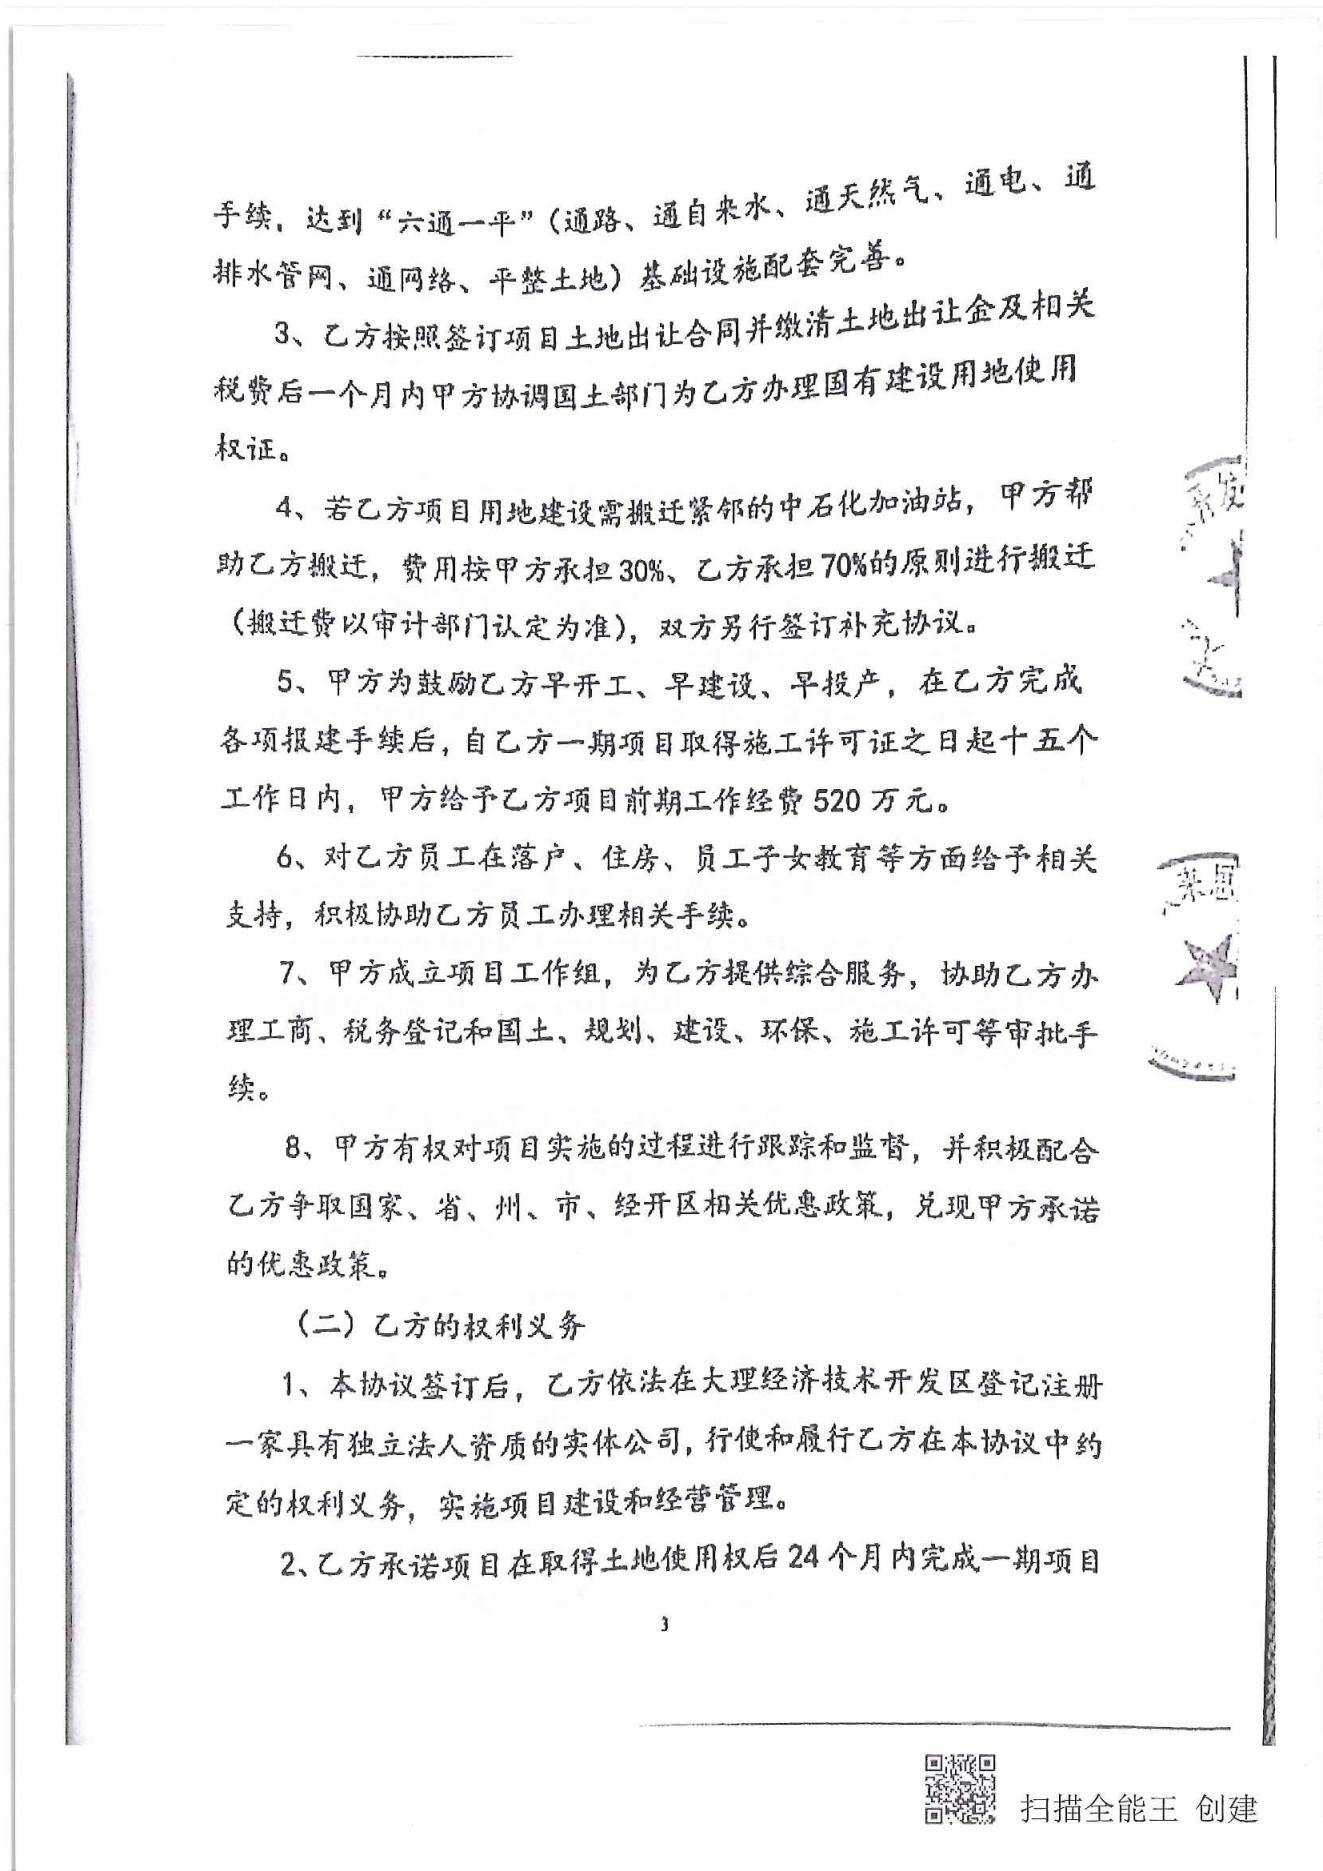 手续，达到“六通一平”（通路、通自来水、通天然气、通电、通
排水管网、通网络、平整土地）基础设施配套完善。
3、乙方按照签订项目土地出让合同并缴清土地出让金及相关
税费后一个月内甲方协调国土部门为乙方办理国有建设用地使用
权证。
4、若乙方项目用地建设需搬迁紧邻的中石化加油站，甲方帮
助乙方搬迁，费用按甲方承担30%、乙方承担70%的原则进行搬迁
（搬迁费以审计部门认定为准），双方另行签订补充协议。
5、甲方为鼓励乙方早开工、早建设、早投产，在乙方完成
各项报建手续后，自乙方一期项目取得施工许可证之日起十五个
工作日内，甲方给予乙方项目前期工作经费520万元。
6、对乙方员工在落户、住房、员工子女教育等方面给予相关
支持，积极协助乙方员工办理相关手续。
7、甲方成立项目工作组，为乙方提供综合服务，协助乙方办
理工商、税务登记和国土、规划、建设、环保、施工许可等审批手
续。
8、甲方有权对项目实施的过程进行跟踪和监督，并积极配合
乙方争取国家、省、州、市、经开区相关优惠政策，兑现甲方承诺
的优惠政策。
（二）乙方的权利义务
1、本协议签订后，乙方依法在大理经济技术开发区登记注册
一家具有独立法人资质的实体公司，行使和履行乙方在本协议中约
定的权利义务，实施项目建设和经营管理。
2、乙方承诺项目在取得土地使用权后24个月内完成一期项目
3
扫描全能王 创建